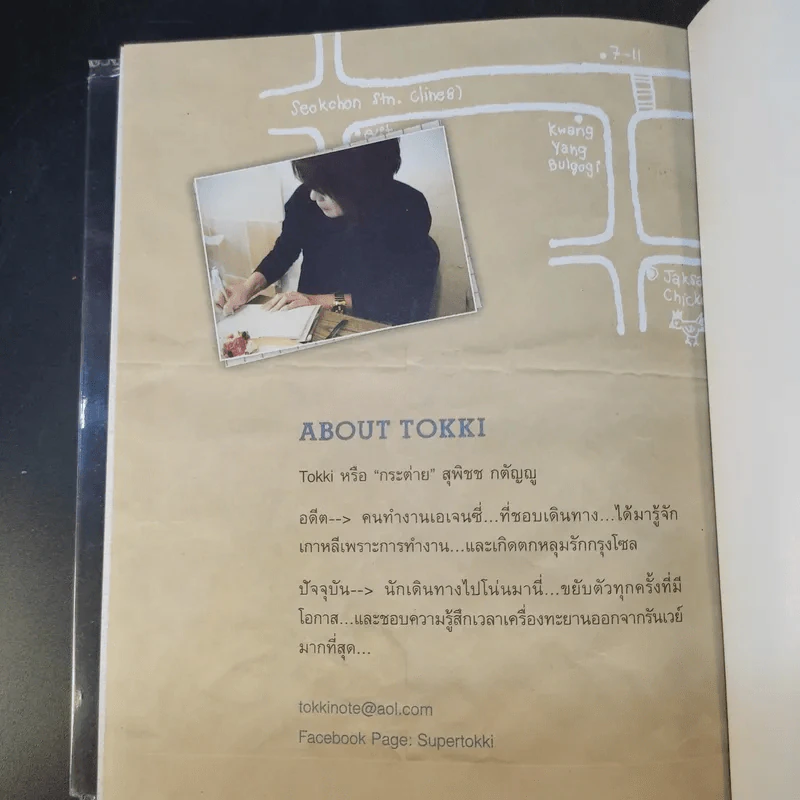 7-11
Seokchon Stn. (line8)
Kwang
Yang
Bulgogi
Jaksa
Chick
ABOUT TOKKI
Tokki หรือ “กระต่าย” สุพิชช กตัญญู
อดีต--> คนทำงานเอเจนซี่...ที่ชอบเดินทาง...ได้มารู้จัก
เกาหลีเพราะการทำงาน...และเกิดตกหลุมรักกรุงโซล
ปัจจุบัน--> นักเดินทางไปโน่นมานี่...ขยับตัวทุกครั้งที่มี
โอกาส...และชอบความรู้สึกเวลาเครื่องทะยานออกจากรันเวย์
มากที่สุด...
tokkinote@aol.com
Facebook Page: Supertokki